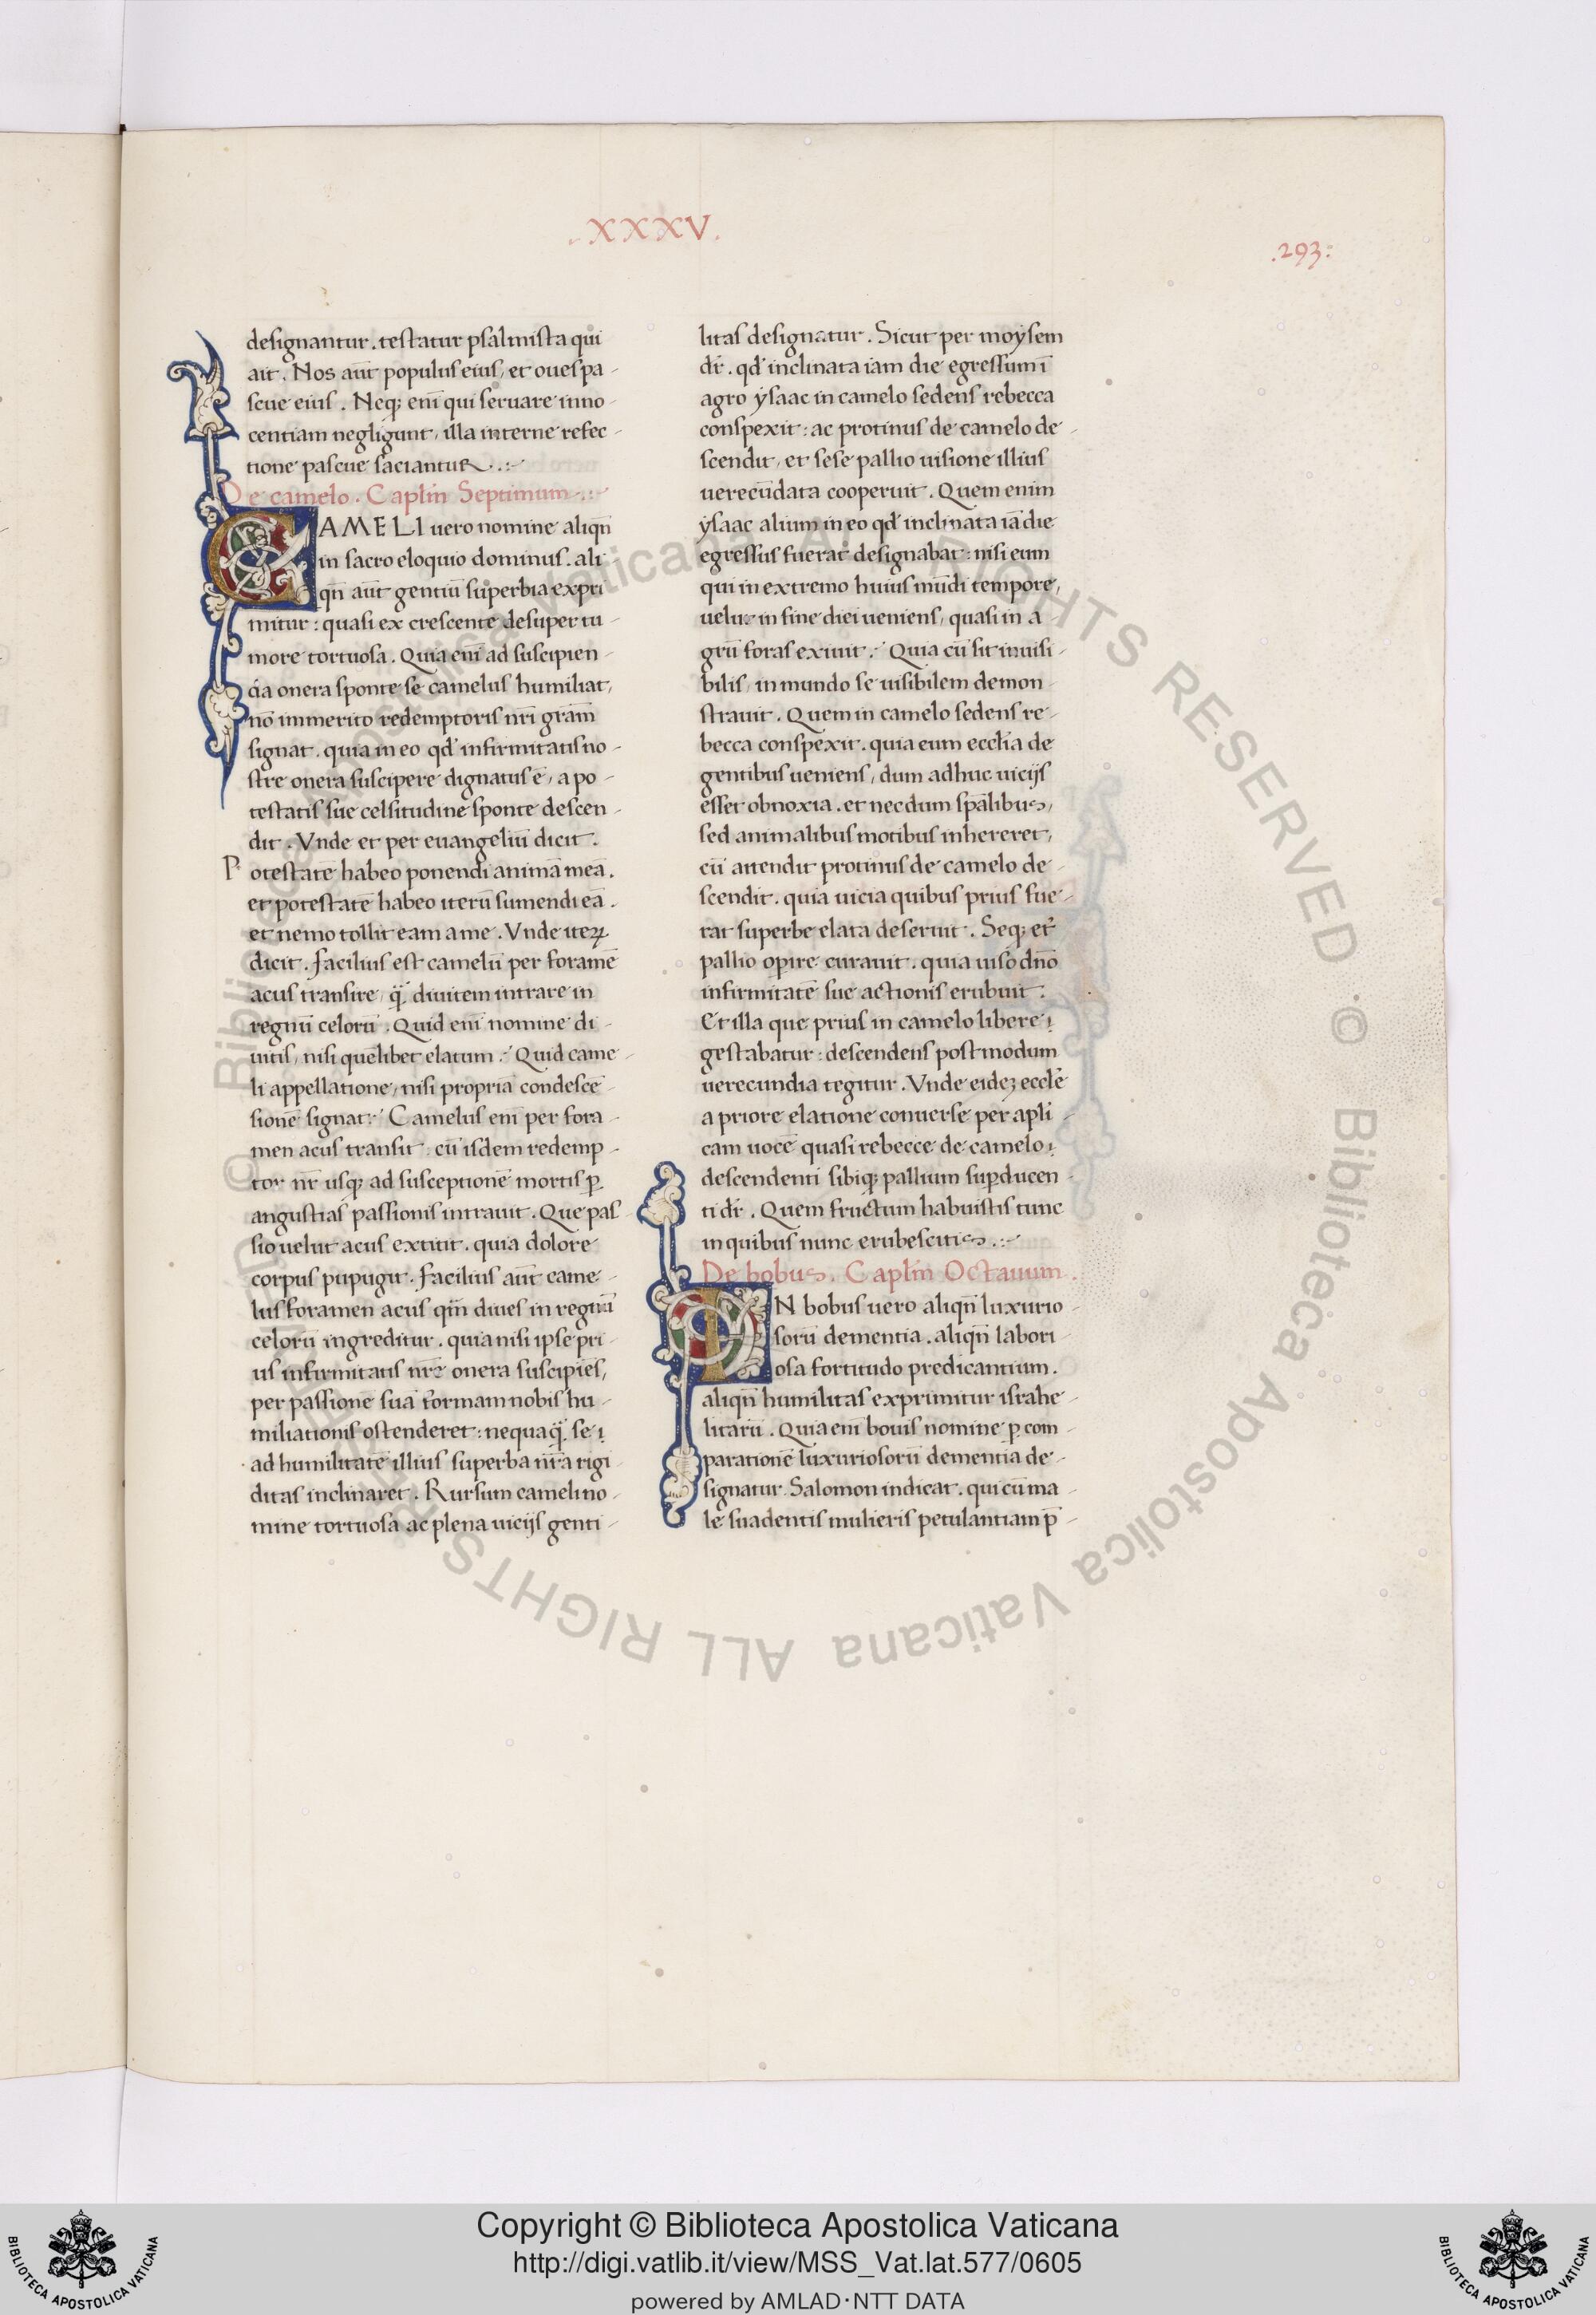 .XXXV.
.293:
designantur. testatur psalmista qui
ait. Nos aūt populus eius, et oues pa-
scue eius. Neq; enī qui seruare inno-
centiam negligunt, illa interne refec-
tione pascue saciantur.
De camelo. Caplm̄ Septimum.
CAMELI uero nomine aliqn̄
in sacro eloquio dominus. ali
qn̄ aūt gentiū superbia expri
mitur: quasi ex crescente desuper tu-
more tortuosa. Quia enī ad suscipien-
da onera sponte se camelus humiliat,
nō immerito redemptoris nr̄i grām
signat. quia in eo qd' infirmitatis no-
stre onera suscipere dignatus ē, a po-
testatis sue celsitudine sponte descen-
dit. Vnde et per euangeliū dicit.
Potestatē habeo ponendi animā meā.
et potestatē habeo iterū sumendi eā.
et nemo tollit eam a me. Vnde iteꝝ
dicit. facilius est camelū per foramē
acus transire, q̄ diuitem intrare in
regnū celorū. Quid enī nomine di-
uitis, nisi quēlibet elatum. Quid came-
li appellatione, nisi propriā condescē-
sionē signat. Camelus enī per fora-
men acus transit. cū isdem redemp-
tor nr̄ usq; ad susceptionē mortis ꝑ
angustias passionis intrauit. Que pas-
sio uelut acus extitit. quia dolore
corpus pupugit. facilius aūt came-
lus foramen acus qm̄ diues in regnū
celorū ingreditur. quia nisi ipse pri-
us infirmitatis nr̄e onera suscipiēs,
per passionē suā formam nobis hu-
miliationis ostenderet: nequaq̄ se
ad humilitatē illius superba nr̄a rigi
ditas inclinaret. Rursum cameli no-
mine tortuosa ac plena uicijs genti-
litas designatur. Sicut per moẏsem
dr̄. qd' inclinata iam die egressum ī
agro ẏsaac in camelo sedens rebecca
conspexit: ac protinus de camelo de-
scendit, et sese pallio uisione illius
uerecūdata cooperuit. Quem enim
ẏsaac alium in eo qd' inclinata iā die
egressus fuerat designabat: nisi eum
qui in extremo huius mūdi tempore,
uelut in fine diei ueniens, quasi in a-
grū foras exiuit. Quia cū sit inuisi-
bilis, in mundo se uisibilem demon-
strauit. Quem in camelo sedens re-
becca conspexit. quia eum eccl'ia de
gentibus ueniens, dum adhuc uicijs
esset obnoxia. et necdum sp̄alibus,
sed animalibus motibus inhereret,
cū attendit protinus de camelo de-
scendit. quia uicia quibus prius fue-
rat superbe elata deseruit. Seq; et'
pallio opire curauit. quia uiso dn̄o
infirmitatē sue actionis erubuit.
Et illa que prius in camelo libere
gestabatur: descendens postmodum
uerecundia tegitur. Vnde eidez eccl'e
a priore elatione conuerse per apl'i-
cam uocē quasi rebecce de camelo
descendenti sibiq; pallium suꝑducen-
ti dr̄. Quem fructum habuistis tunc
in quibus nunc erubescitis.
De bobus. Caplm̄ Octauum.
IN bobus uero aliqn̄ luxurio-
sorū dementia. aliqn̄ labori-
osa fortitudo predicantium.
aliqn̄ humilitas exprimitur israhe-
litarū. Quia enī bouis nomine ꝑ com-
parationē luxuriosorū dementia de-
signatur. Salomon indicat. qui cū ma-
le suadentis mulieris petulantiam p̄-
© Biblioteca Apostolica Vaticana ALL RIGHTS RESERVED
© Biblioteca Apostolica Vaticana ALL RIGHTS RESERVED
Copyright © Biblioteca Apostolica Vaticana
http://digi.vatlib.it/view/MSS_Vat.lat.577/0605
powered by AMLAD·NTT DATA
BIBLIOTECA APOSTOLICA VATICANA
BIBLIOTECA APOSTOLICA VATICANA